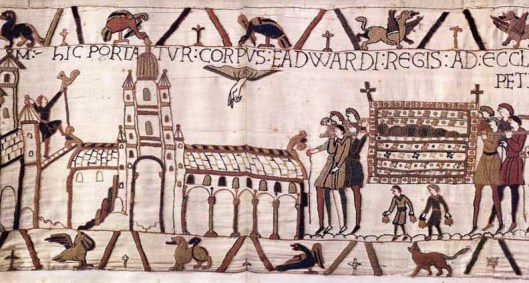 HIC PORTATUR: CORPUS: EADWARDI: REGIS: AD: ECCLE
PETRI